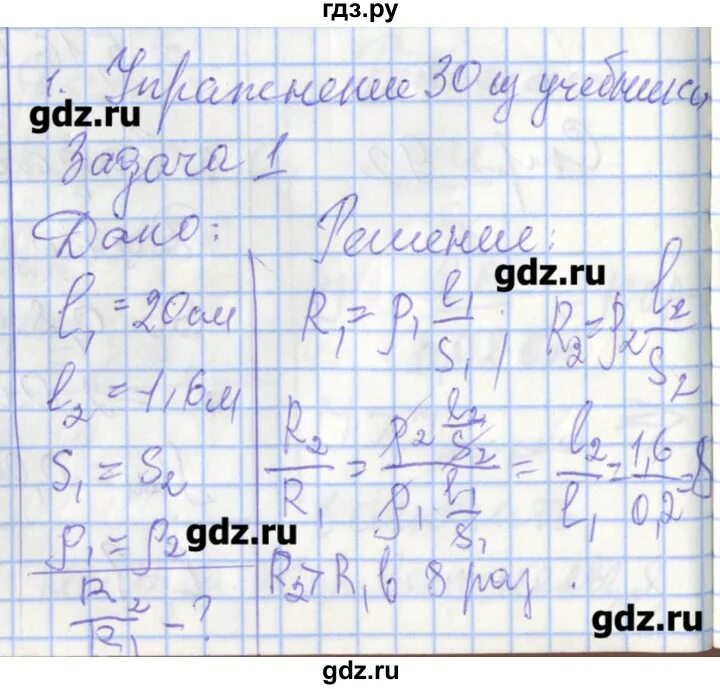 гдз.ру
1. Упражнение 30 из учебника,
gdz.ru
Задача 1
Дано:
l₁ = 20см
l₂ = 1,6м
S₁ = S₂
ρ₁ = ρ₂
R₂/R₁ - ?
Решение:
gdz.ru
R₁ = ρ₁ l₁/S₁ ; R₂ = ρ₂ l₂/S₂
R₂/R₁ = (ρ₂ l₂/S₂)/(ρ₁ l₁/S₁) = l₂/l₁ = 1,6/0,2 = 8
gdz.ru
R₂ > R₁ в 8 раз.
gdz.ru
gdz.ru